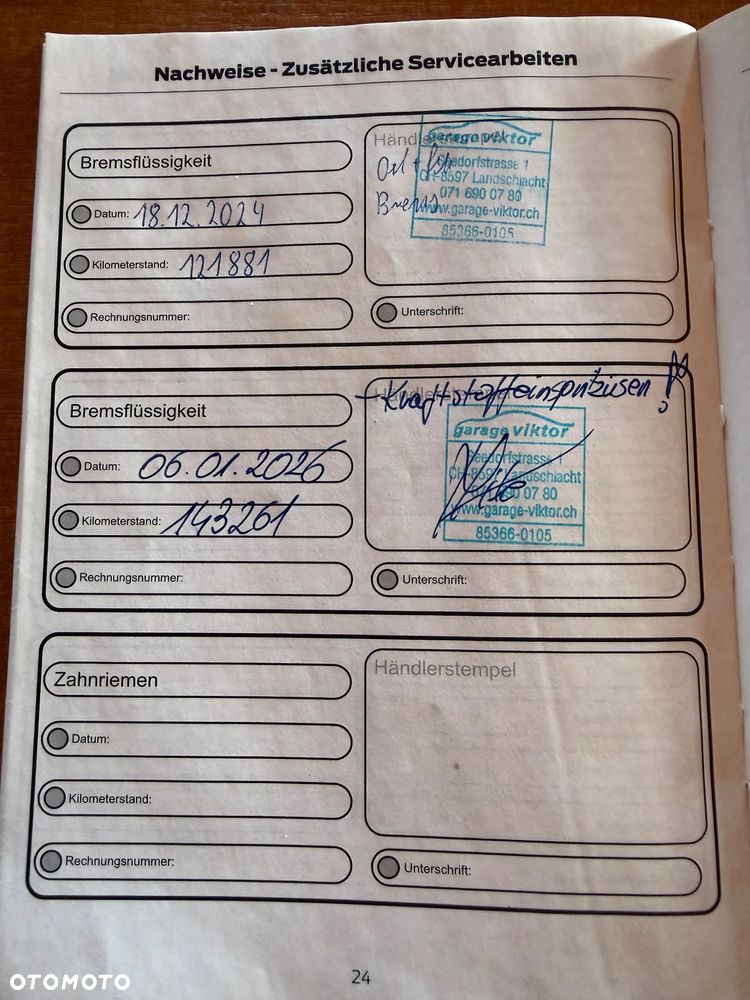 Nachweise - Zusätzliche Servicearbeiten
Bremsflüssigkeit
Datum: 18.12.2024
Kilometerstand: 121881
Rechnungsnummer:
Händlerstempel
garage viktor
Seedorfstrasse 1
CH-8597 Landschlacht
071 690 07 80
www.garage-viktor.ch
85366-0105
Unterschrift:
Bremsflüssigkeit
Datum: 06.01.2026
Kilometerstand: 143261
Rechnungsnummer:
- Kraftstoffeinspritzdüsen !
garage viktor
Seedorfstrasse 1
CH-8597 Landschlacht
07 80
www.garage-viktor.ch
85366-0105
Unterschrift:
Zahnriemen
Datum:
Kilometerstand:
Rechnungsnummer:
Händlerstempel
Unterschrift:
24
OTOMOTO